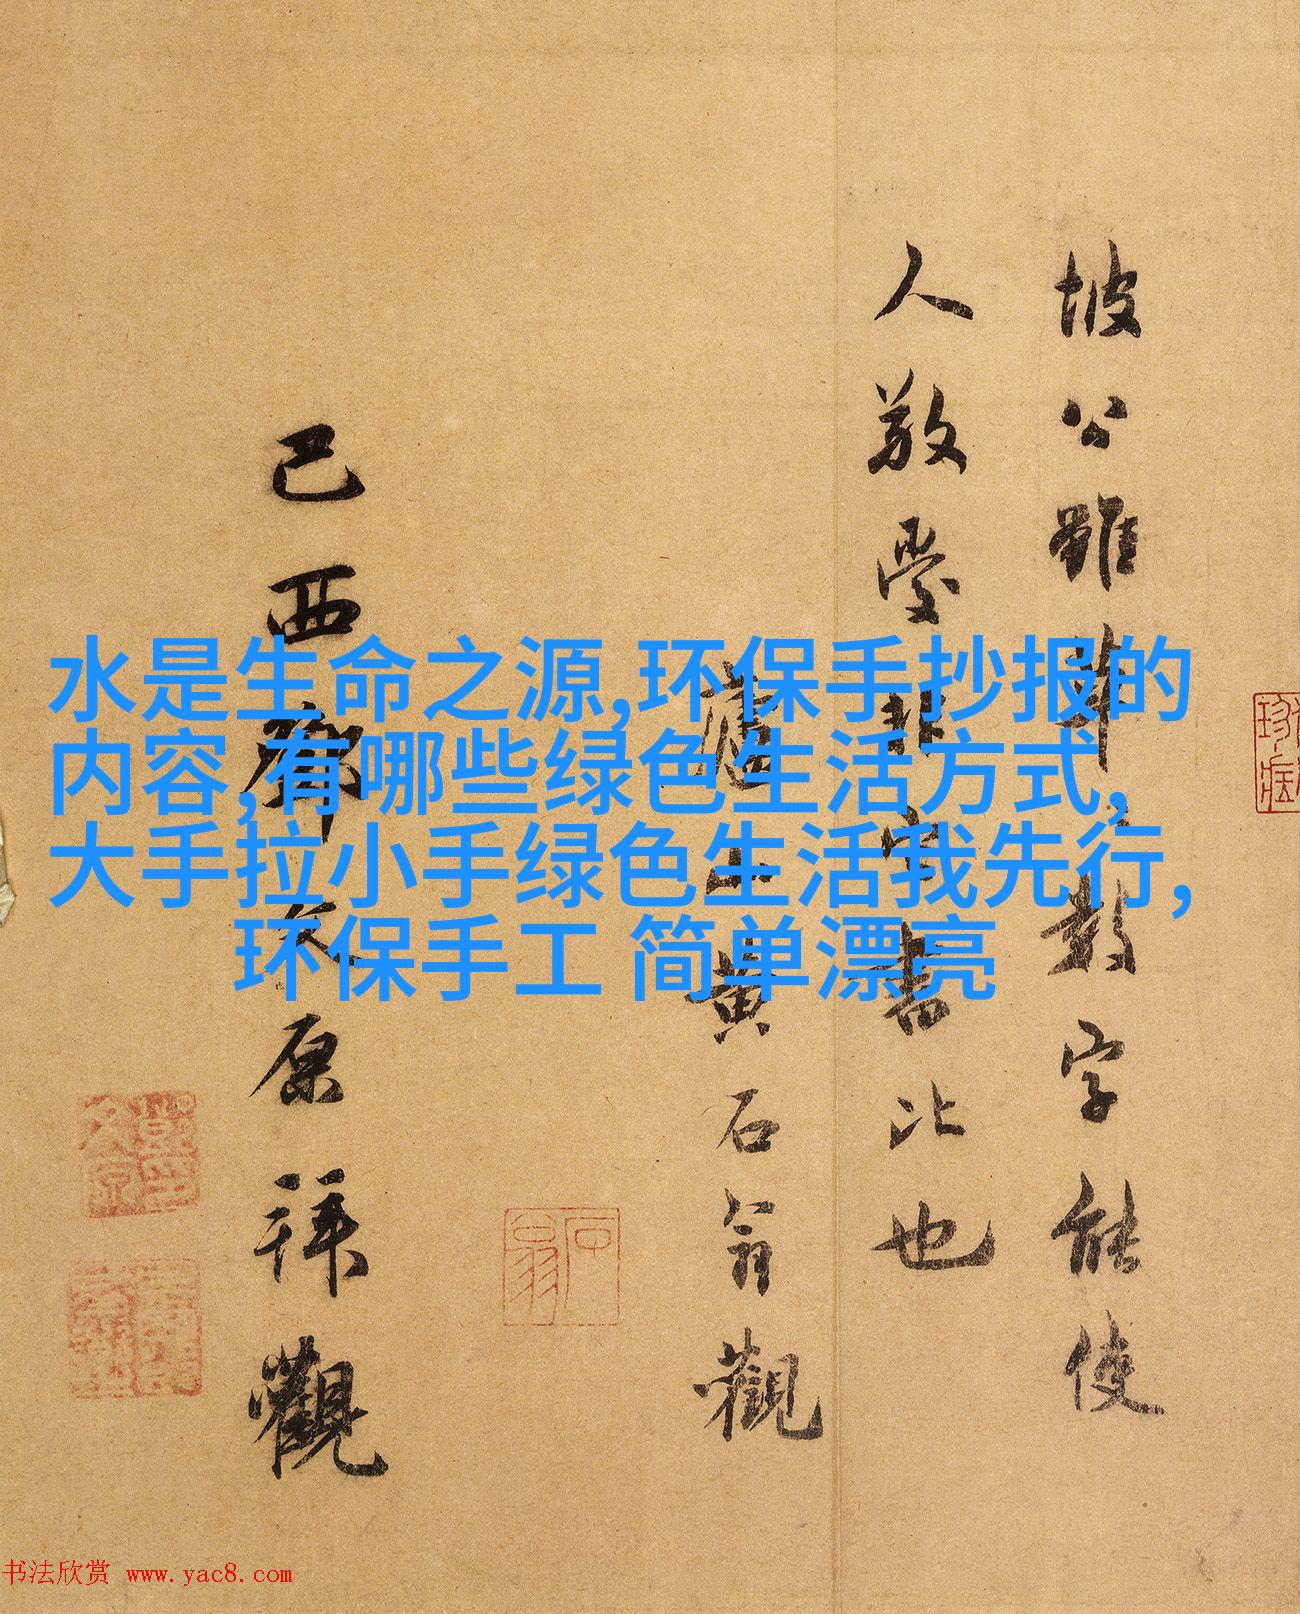 坡公雖非
敎字能使
人敬愛非
書比也
黄石翁觀
己酉鄧文原拜觀
水是生命之源,环保手抄报的
内容,有哪些绿色生活方式,
大手拉小手绿色生活我先行,
环保手工 简单漂亮
石翁
书法欣赏 www.yac8.com